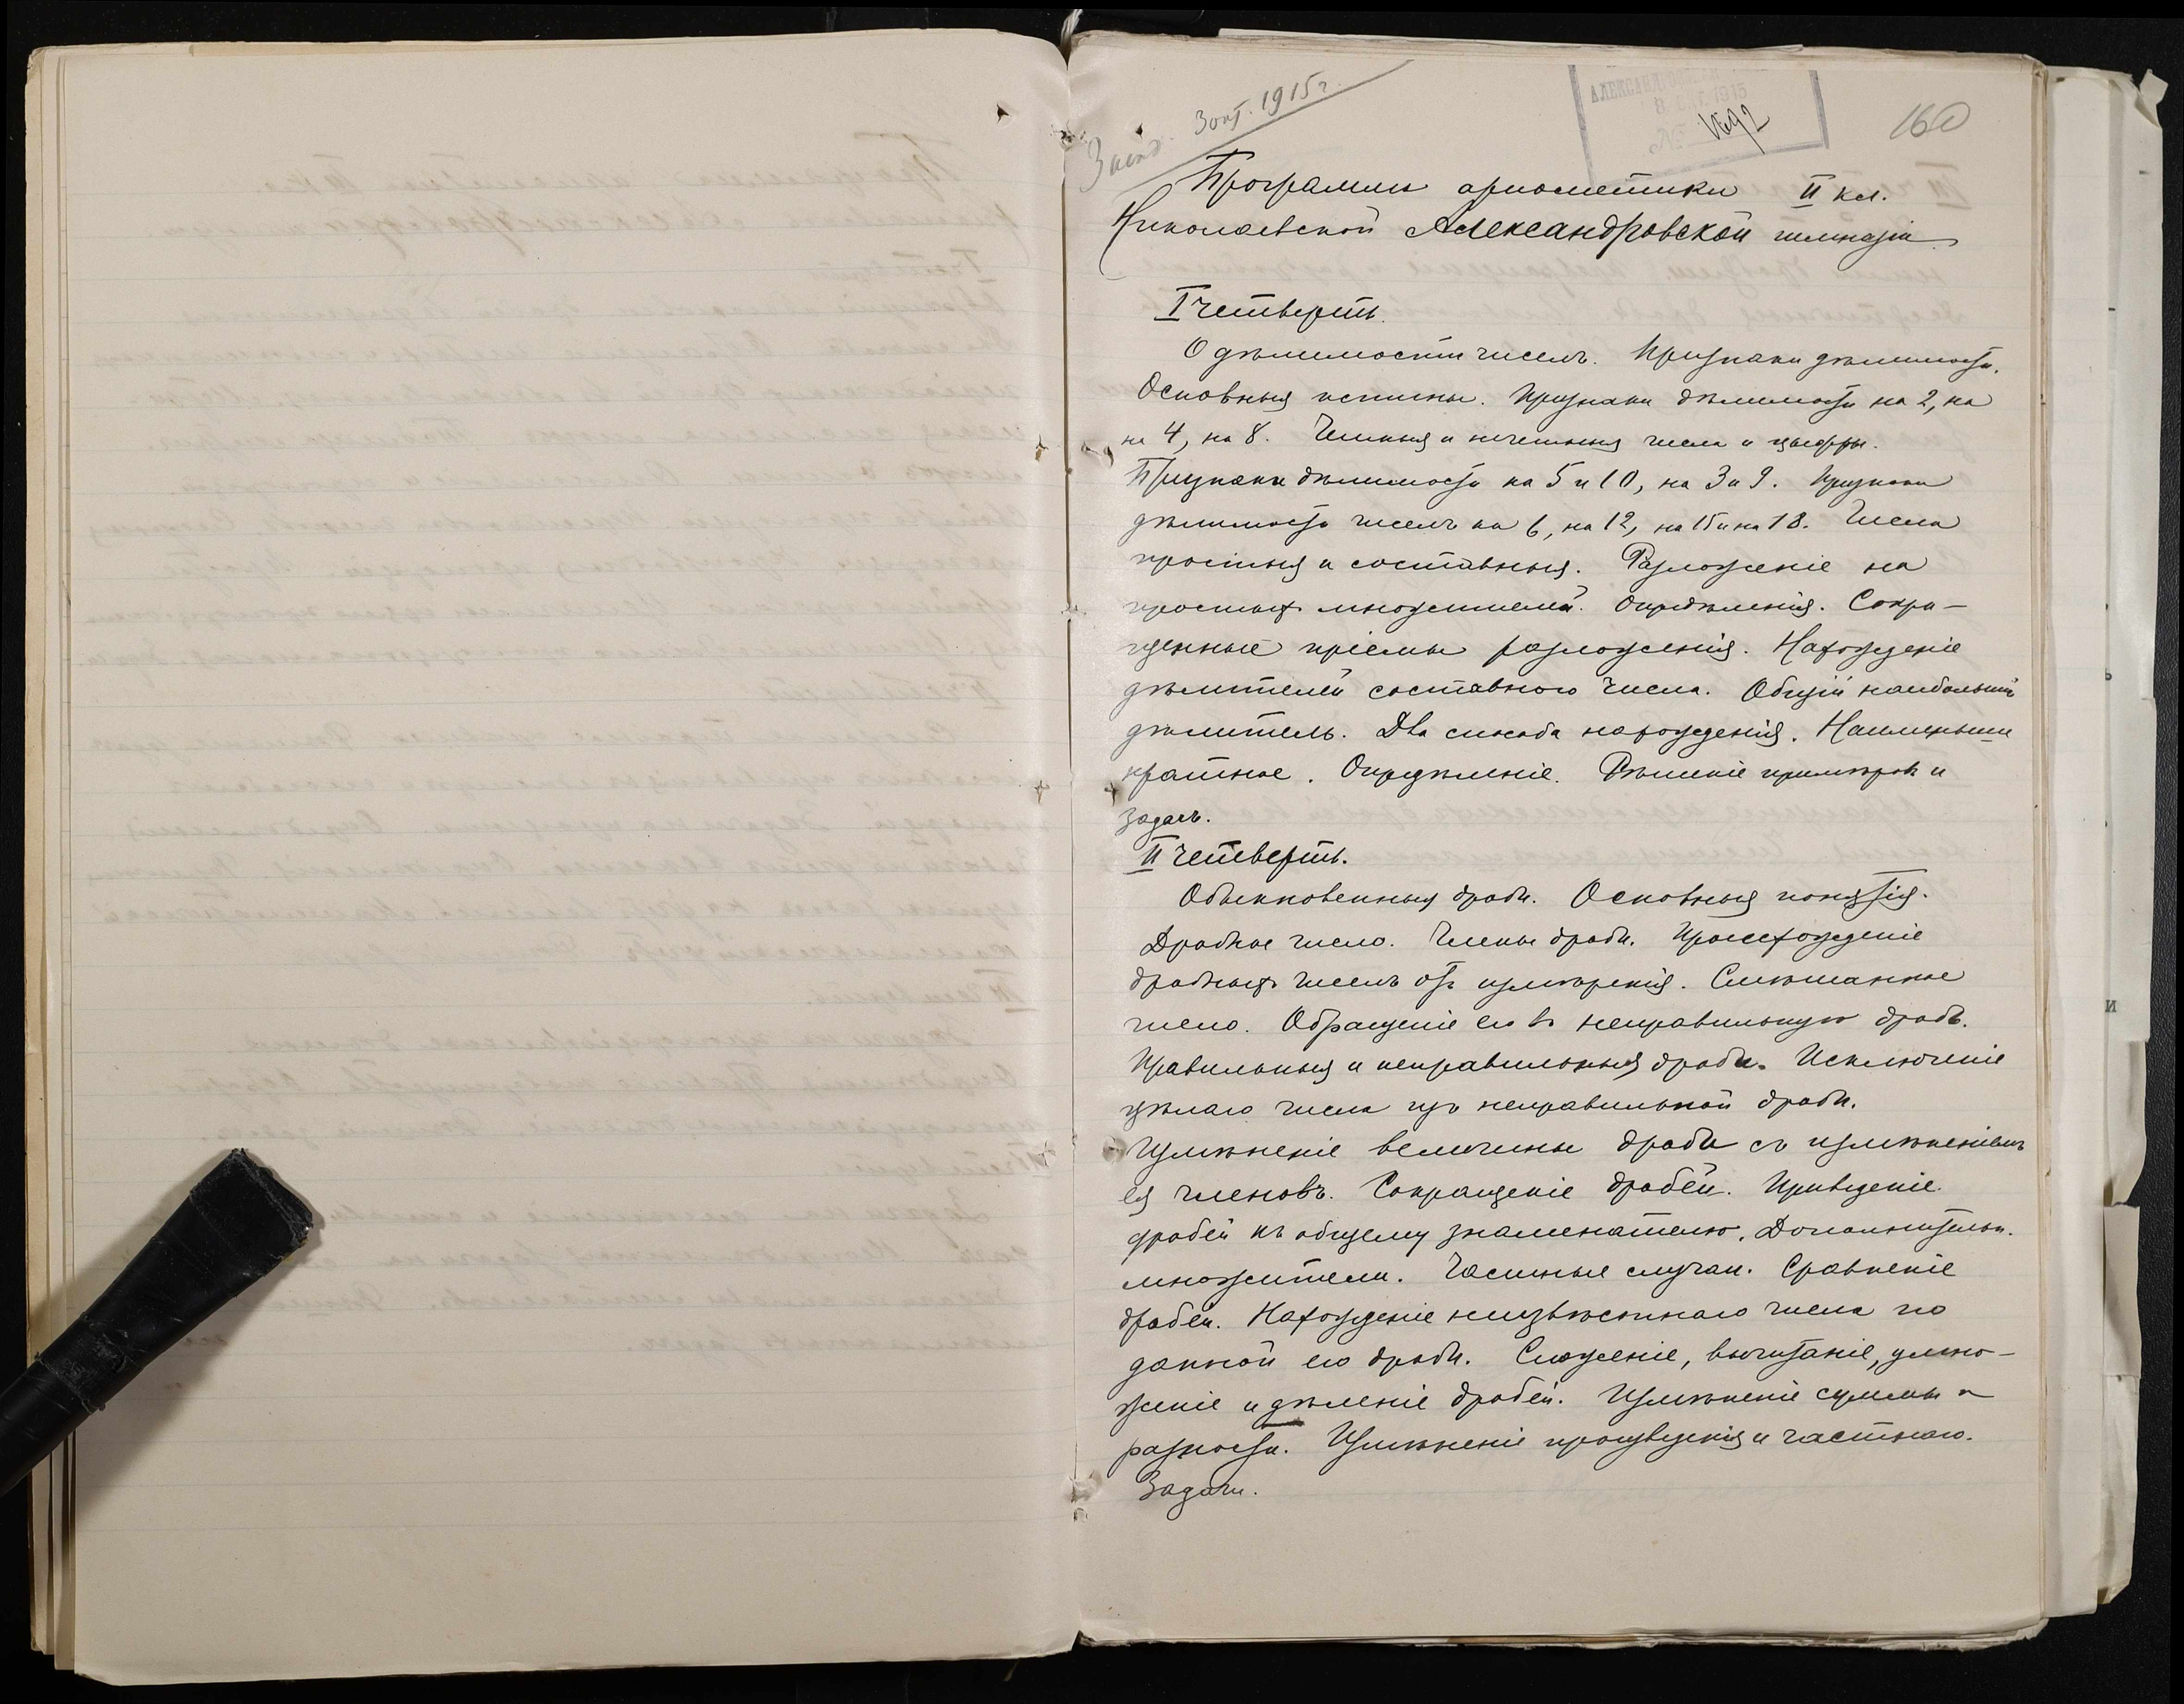 3 окт. 1915 г.
1692
160
Программы ариѳметики II кл.
Николаевской Александровской гимназіи
I четверть.
О дѣлимости чиселъ. Признаки дѣлимости.
Основныя истины. Признаки дѣлимости на 2, на
на 4, на 8. Четныя и нечетныя числа и цыфры.
Признаки дѣлимости на 5 и 10, на 3 и 9. Признаки
дѣлимости чиселъ на 6, на 12, на 15 и на 18. Числа
простыя и составныя. Разложеніе на
простыхъ множителей. Опредѣленія. Сокра-
щенные пріемы разложенія. Нахожденіе
дѣлителей составного числа. Общій наибольшій
дѣлитель. Два способа нахожденія. Наименьшее
кратное. Опредѣленіе. Рѣшеніе примѣровъ и
задачъ.
II четверть.
Обыкновенныя дроби. Основныя понятія.
Дробное число. Члены дроби. Происхожденіе
дробныхъ чиселъ отъ измѣренія. Смѣшанное
число. Обращеніе его въ неправильную дробь.
Правильныя и неправильныя дроби. Исключеніе
цѣлаго числа изъ неправильной дроби.
Измѣненіе величины дроби съ измѣненіемъ
ея членовъ. Сокращеніе дробей. Приведеніе
дробей къ общему знаменателю. Дополнительн.
множители. Частные случаи. Сравненіе
дробей. Нахожденіе неизвѣстнаго числа по
данной его дроби. Сложеніе, вычитаніе, умно-
женіе и дѣленіе дробей. Измѣненіе суммы и
разности. Измѣненіе произведенія и частнаго.
Задачи.